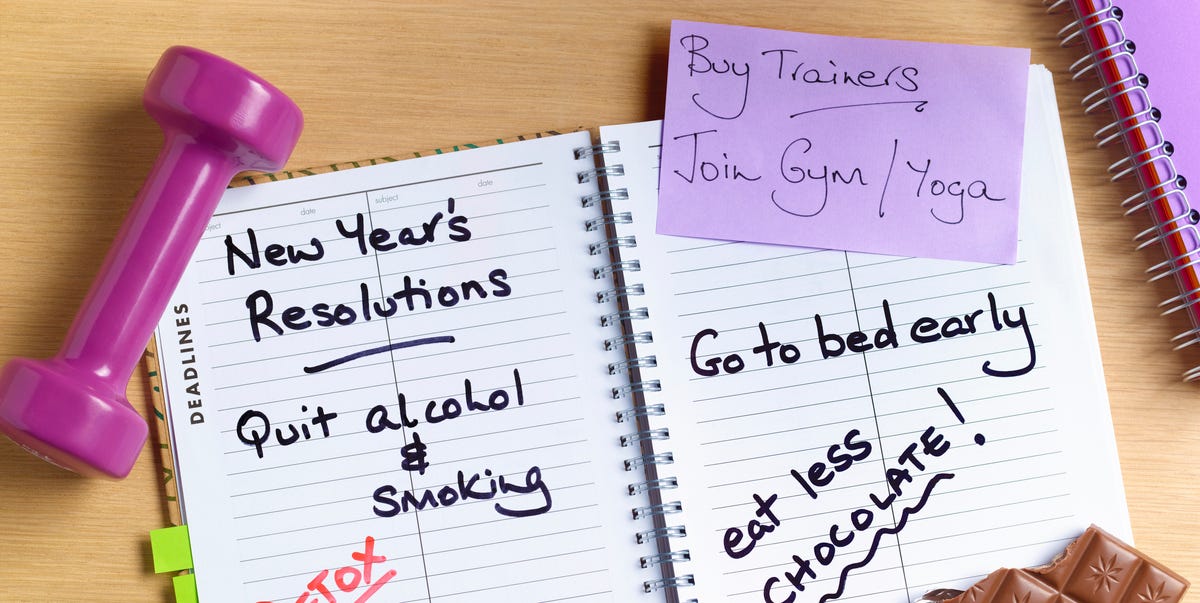 Buy Trainers
Join Gym / Yoga
date
subject
date
DEADLINES
New Year's
Resolutions
Quit alcohol
&
smoking
Go to bed early
eat less
CHOCOLATE!